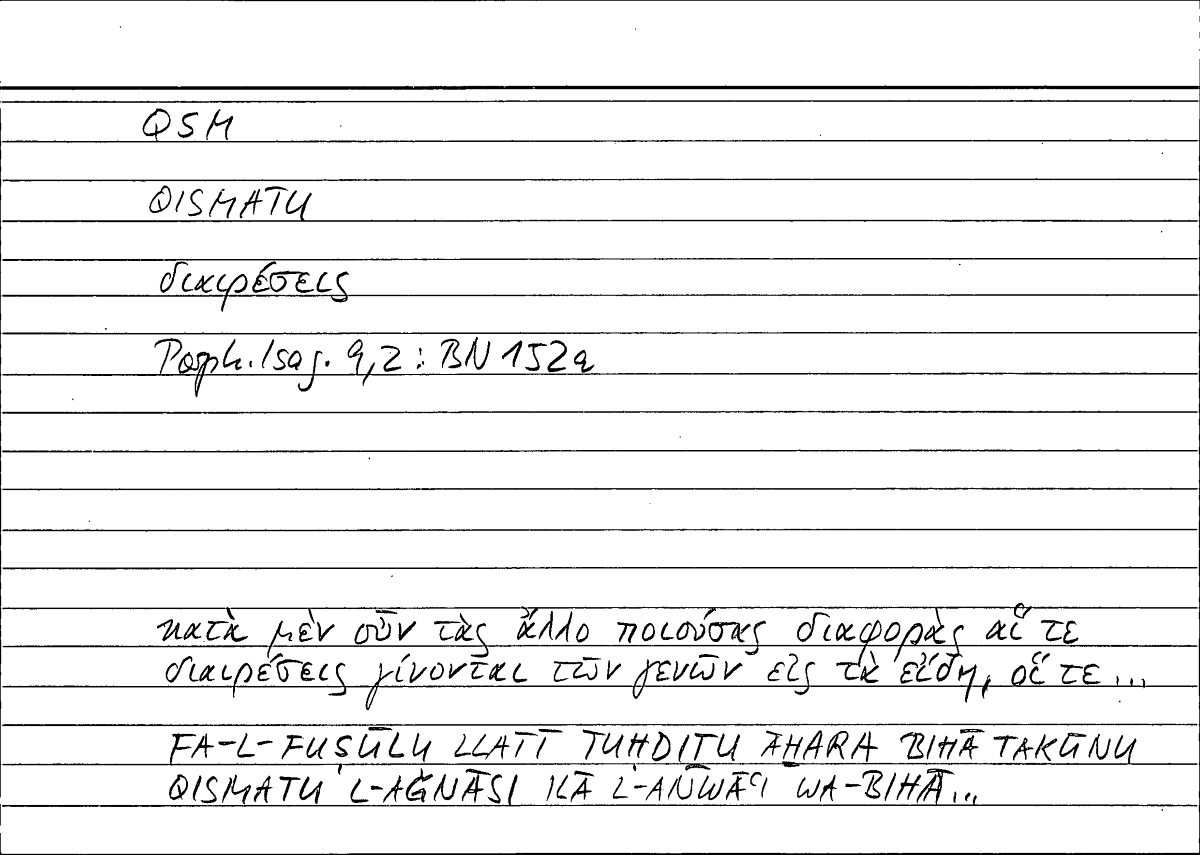 QSM
QISMATU
διαιρέσεις
Porph. Isag. 9,2 : BN 152a
κατὰ μὲν οὖν τὰς ἄλλο ποιούσας διαφορὰς αἵ τε
διαιρέσεις γίνονται τῶν γενῶν εἰς τὰ εἴδη, οἵ τε...
FA-L-FUṢŪLU LLATĪ TUḤDITU ĀḪARA BIHĀ TAKŪNU
QISMATU L-AǦNĀSI ILĀ L-ANWĀʿI WA-BIHĀ...